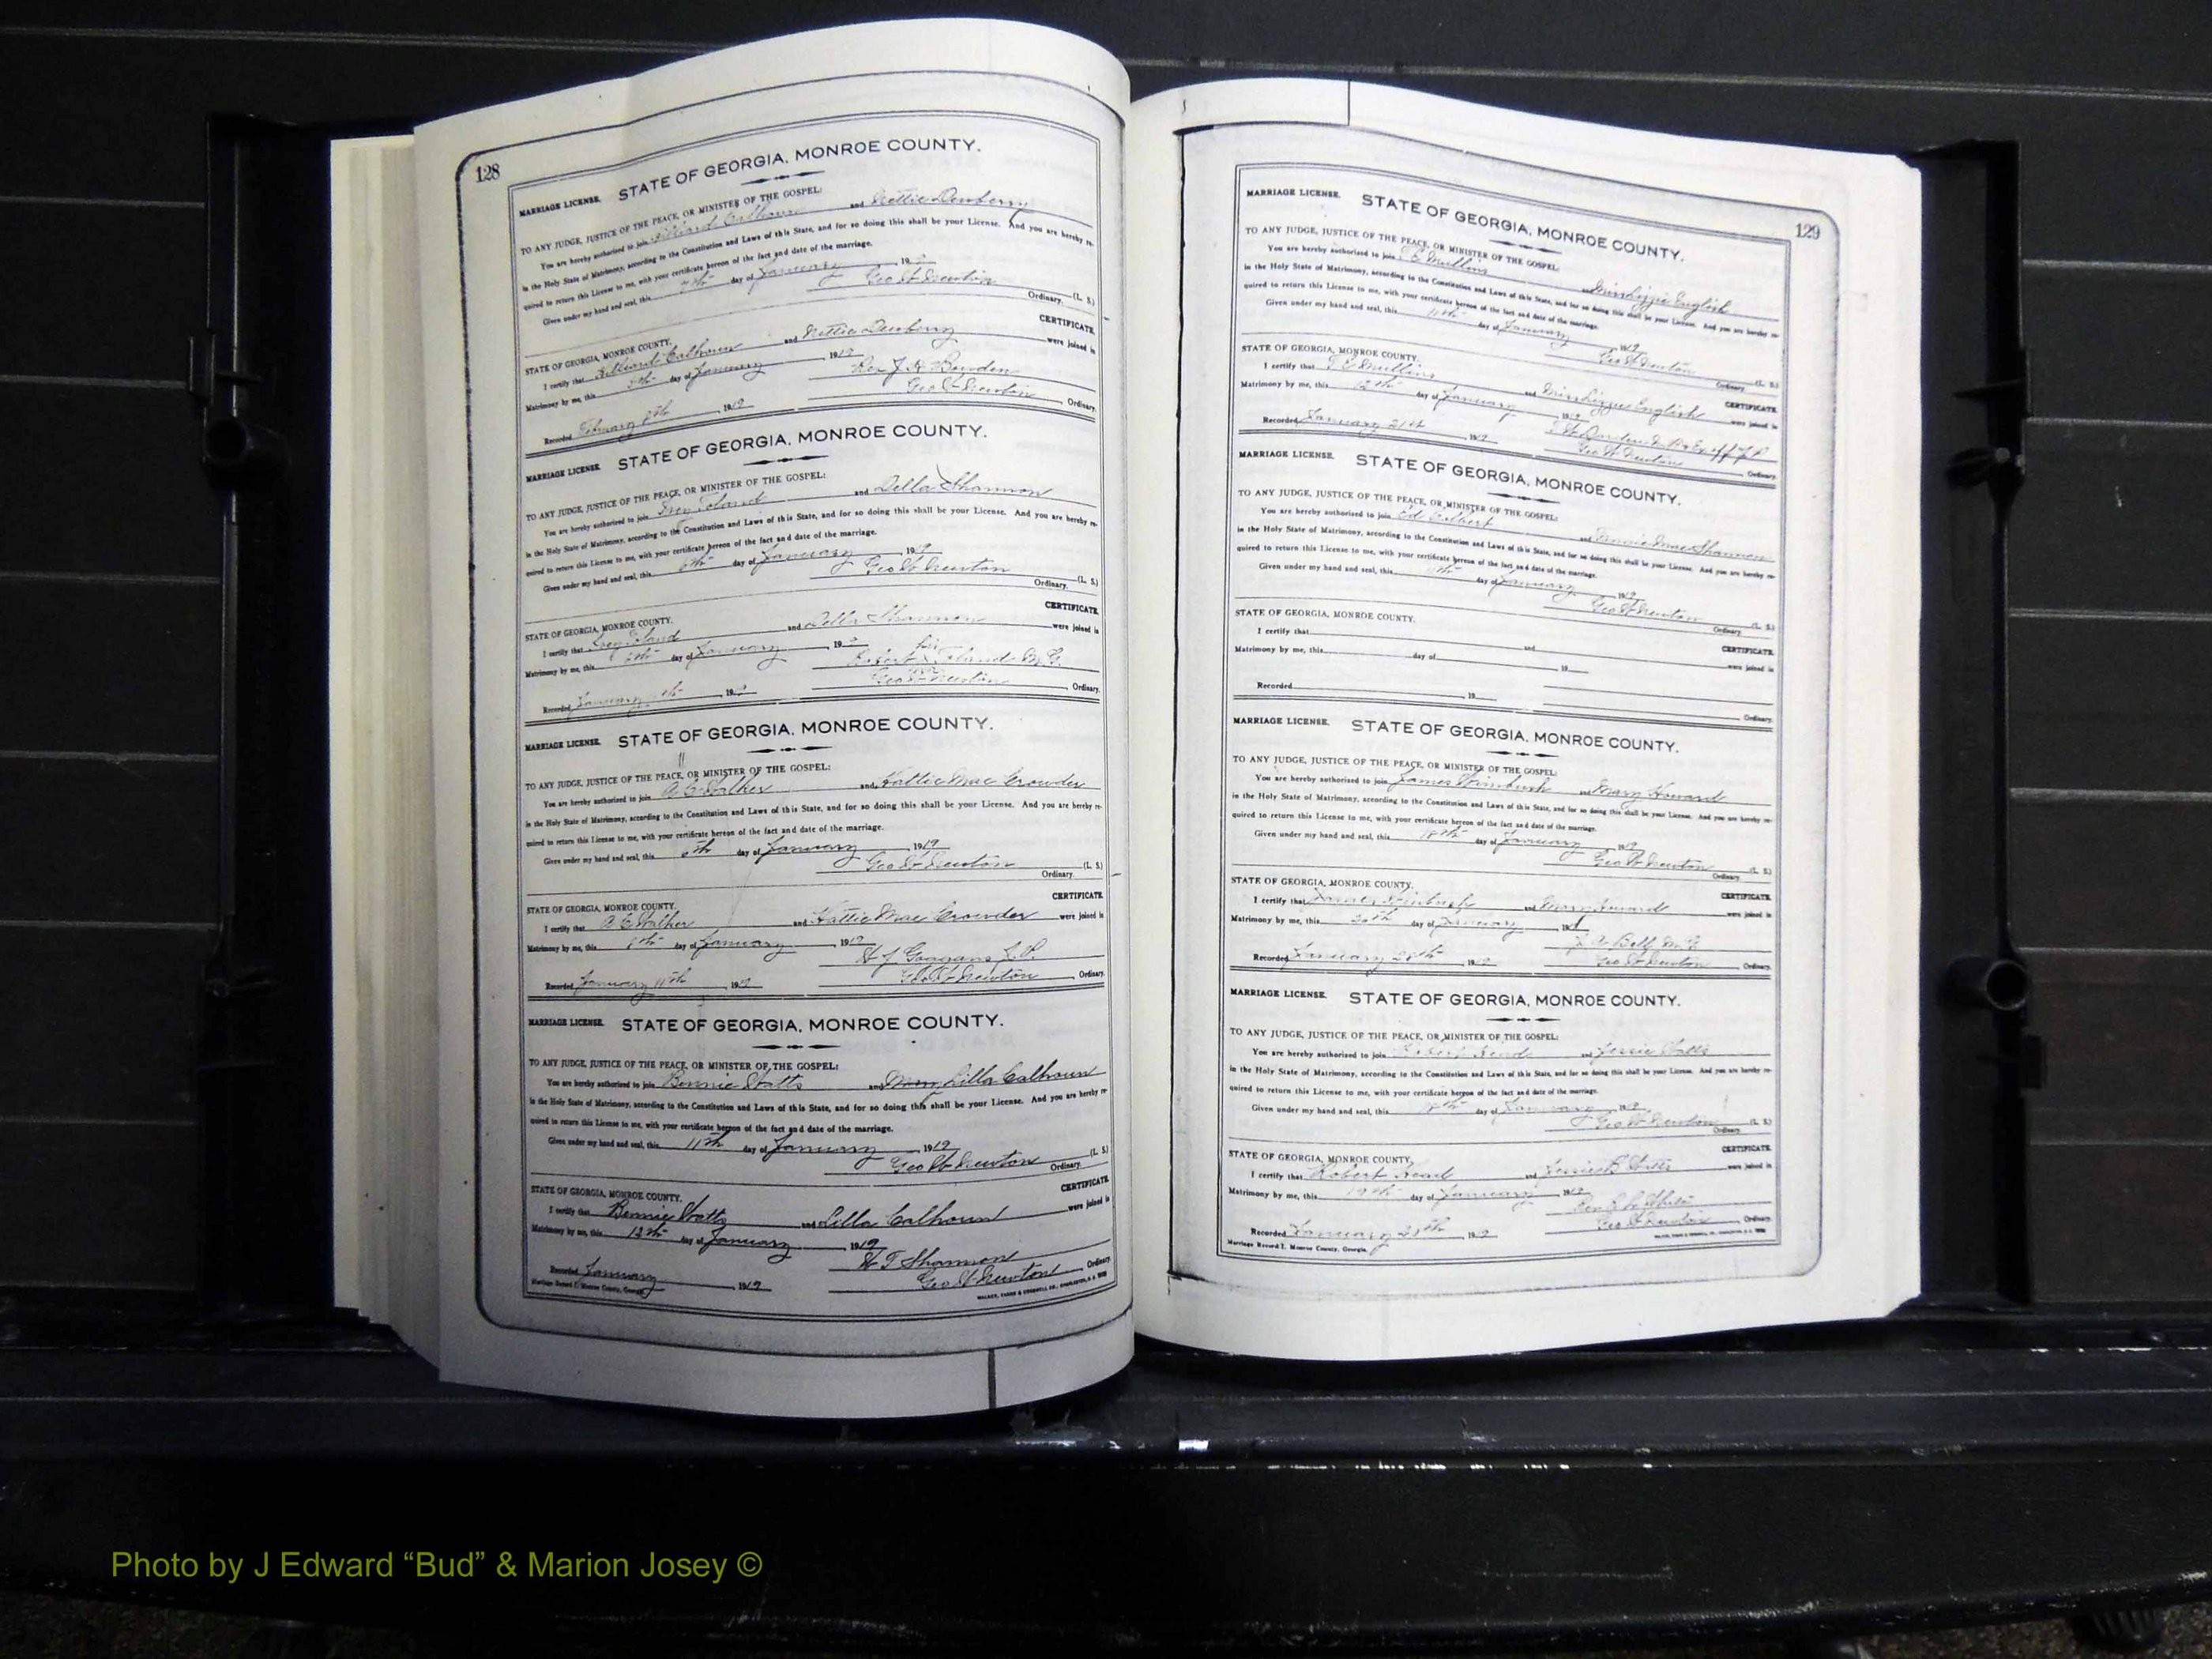 128
MARRIAGE LICENSE. STATE OF GEORGIA, MONROE COUNTY.
TO ANY JUDGE, JUSTICE OF THE PEACE, OR MINISTER OF THE GOSPEL:
You are hereby authorized to join Hilliard Calhoun and Nettie Dewberry
in the Holy State of Matrimony, according to the Constitution and Laws of this State, and for so doing this shall be your License. And you are hereby re-
quired to return this License to me, with your certificate hereon of the fact and date of the marriage.
Given under my hand and seal, this day of January 19
Geo W Newton (L. S.)
Ordinary.
STATE OF GEORGIA, MONROE COUNTY. CERTIFICATE.
I certify that Hilliard Calhoun and Nettie Dewberry were joined in
Matrimony by me, this 5th day of January 1919
Rev J. H. Bowden
Recorded February 8th 1919 Geo W Newton Ordinary.
MARRIAGE LICENSE. STATE OF GEORGIA, MONROE COUNTY.
TO ANY JUDGE, JUSTICE OF THE PEACE, OR MINISTER OF THE GOSPEL:
You are hereby authorized to join and Della Shannon
in the Holy State of Matrimony, according to the Constitution and Laws of this State, and for so doing this shall be your License. And you are hereby re-
quired to return this License to me, with your certificate hereon of the fact and date of the marriage.
Given under my hand and seal, this 6th day of January 1919
Geo W Newton (L. S.)
Ordinary.
STATE OF GEORGIA, MONROE COUNTY. CERTIFICATE.
I certify that and Della Shannon were joined in
Matrimony by me, this day of January 19
his
Robert X M. G.
Recorded January 19 Geo W Newton Ordinary.
MARRIAGE LICENSE. STATE OF GEORGIA, MONROE COUNTY.
TO ANY JUDGE, JUSTICE OF THE PEACE, OR MINISTER OF THE GOSPEL:
You are hereby authorized to join A C Walker and Hattie Mae Crowder
in the Holy State of Matrimony, according to the Constitution and Laws of this State, and for so doing this shall be your License. And you are hereby re-
quired to return this License to me, with your certificate hereon of the fact and date of the marriage.
Given under my hand and seal, this 6th day of January 1919
Geo W Newton (L. S.)
Ordinary.
STATE OF GEORGIA, MONROE COUNTY. CERTIFICATE.
I certify that A C Walker and Hattie Mae Crowder were joined in
Matrimony by me, this day of January 1919
W J Goggans J. P.
Recorded January 11th 1919 Geo W Newton Ordinary.
MARRIAGE LICENSE. STATE OF GEORGIA, MONROE COUNTY.
TO ANY JUDGE, JUSTICE OF THE PEACE, OR MINISTER OF THE GOSPEL:
You are hereby authorized to join Bennie Watts and Lilla Calhoun
in the Holy State of Matrimony, according to the Constitution and Laws of this State, and for so doing this shall be your License. And you are hereby re-
quired to return this License to me, with your certificate hereon of the fact and date of the marriage.
Given under my hand and seal, this 11th day of January 1919
Geo W Newton (L. S.)
Ordinary.
STATE OF GEORGIA, MONROE COUNTY. CERTIFICATE
I certify that Bennie Watts and Lilla Calhoun were joined in
Matrimony by me, this 12th day of January 1919
W T Shannon
Recorded January 1919 Geo W Newton Ordinary.
Marriage Record I, Monroe County, Georgia.
129
MARRIAGE LICENSE. STATE OF GEORGIA, MONROE COUNTY.
TO ANY JUDGE, JUSTICE OF THE PEACE, OR MINISTER OF THE GOSPEL:
You are hereby authorized to join Mullins and Miss Lizzie English
in the Holy State of Matrimony, according to the Constitution and Laws of this State, and for so doing this shall be your License. And you are hereby re-
quired to return this License to me, with your certificate hereon of the fact and date of the marriage.
Given under my hand and seal, this 11th day of January 1919
Geo W Newton (L. S.)
Ordinary.
STATE OF GEORGIA, MONROE COUNTY. CERTIFICATE.
I certify that Mullins and Miss Lizzie English were joined in
Matrimony by me, this 12th day of January 1919
Recorded January 21st 1919 Geo W Newton Ordinary.
MARRIAGE LICENSE. STATE OF GEORGIA, MONROE COUNTY.
TO ANY JUDGE, JUSTICE OF THE PEACE, OR MINISTER OF THE GOSPEL:
You are hereby authorized to join Ed and Mae Shannon
in the Holy State of Matrimony, according to the Constitution and Laws of this State, and for so doing this shall be your License. And you are hereby re-
quired to return this License to me, with your certificate hereon of the fact and date of the marriage.
Given under my hand and seal, this 11th day of January 1919
Geo W Newton (L. S.)
Ordinary.
STATE OF GEORGIA, MONROE COUNTY. CERTIFICATE.
I certify that and were joined in
Matrimony by me, this day of 19
Recorded 19 Ordinary.
MARRIAGE LICENSE. STATE OF GEORGIA, MONROE COUNTY.
TO ANY JUDGE, JUSTICE OF THE PEACE, OR MINISTER OF THE GOSPEL:
You are hereby authorized to join James Wimbush and Mary Howard
in the Holy State of Matrimony, according to the Constitution and Laws of this State, and for so doing this shall be your License. And you are hereby re-
quired to return this License to me, with your certificate hereon of the fact and date of the marriage.
Given under my hand and seal, this 18th day of January 1919
Geo W Newton (L. S.)
Ordinary.
STATE OF GEORGIA, MONROE COUNTY. CERTIFICATE.
I certify that James Wimbush and Mary Howard were joined in
Matrimony by me, this 20th day of January 19
Bell M. G.
Recorded January 28th 1919 Geo W Newton Ordinary.
MARRIAGE LICENSE. STATE OF GEORGIA, MONROE COUNTY.
TO ANY JUDGE, JUSTICE OF THE PEACE, OR MINISTER OF THE GOSPEL:
You are hereby authorized to join Robert and Jessie Watts
in the Holy State of Matrimony, according to the Constitution and Laws of this State, and for so doing this shall be your License. And you are hereby re-
quired to return this License to me, with your certificate hereon of the fact and date of the marriage.
Given under my hand and seal, this 18th day of January 1919
Geo W Newton (L. S.)
Ordinary.
STATE OF GEORGIA, MONROE COUNTY. CERTIFICATE.
I certify that Robert and Jessie B Watts were joined in
Matrimony by me, this 19th day of January 1919
Rev White
Recorded January 1919 Geo W Newton Ordinary.
Marriage Record I, Monroe County, Georgia.
Photo by J Edward “Bud” & Marion Josey ©